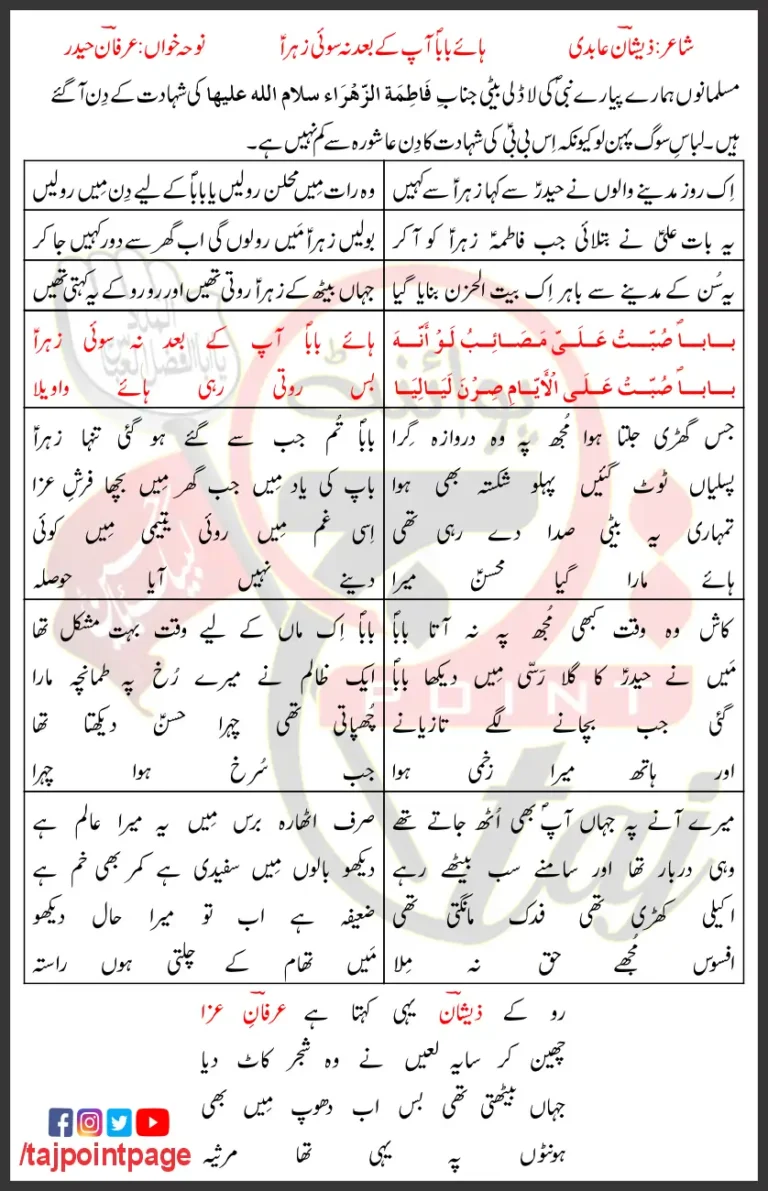 شاعر: ذیشانؔ عابدی ہائے باباؐ آپ کے بعد نہ سوئی زہراؑ نوحہ خواں: عرفانؔ حیدر
مسلمانوں ہمارے پیارے نبیؐ کی لاڈلی بیٹی جنابِ فَاطِمَة الزّھْرَاء سلام اللہ علیھا کی شہادت کے دِن آ گئے
ہیں۔ لباسِ سوگ پہن لو کیونکہ اِس بی بیؑ کی شہادت کا دِن عاشورہ سے کم نہیں ہے۔
اِک روز مدینے والوں نے حیدرؑ سے کہا زہراؑ سے کہیں وہ رات مِیں محلن رولیں یا باباؐ کے لیے دِن مِیں رولیں
یہ بات علیؑ نے بتلائی جب فاطمہؑ زہراؑ کو آ کر بولیں زہراؑ مَیں رولوں گی اب گھر سے دور کہیں جا کر
یہ سُن کے مدینے سے باہر اِک بیت الحزن بنایا گیا جہاں بیٹھ کے زہراؑ روتی تھیں اور رو رو کے یہ کہتی تھیں
بـابـاؐ صُبّـتْ عَـلَـیّ مَـصَـائِـبُ لَـوْ أنّـہَ ہائے باباؐ آپ کے بعد نہ سوئی زہراؑ
بـابـاؐ صُبّـتْ عَـلَـی الْأَیّـامِ صِـرْنَ لَـیَـالِـیَـا بس روتی رہی ہائے واویلا
جس گھڑی جلتا ہوا مُجھ پہ وہ دروازہ گِرا باباؐ تُم جب سے گئے ہو گئی تنہا زہراؑ
پسلیاں ٹوٹ گئیں پہلو شکستہ بھی ہوا باپ کی یاد مِیں جب گھر مِیں بچھا فرشِ عزا
تمہاری یہ بیٹی صدا دے رہی تھی اِسی غم مِیں روئی یتیمی مِیں کوئی
ہائے مارا گیا محسنؑ میرا دینے نہیں آیا حوصلہ
کاش وہ وقت کبھی مُجھ پہ نہ آتا باباؐ باباؐ اِک ماں کے لیے وقت بہت مشکل تھا
مَیں نے حیدرؑ کا گلا رَسّی مِیں دیکھا باباؐ ایک ظالم نے میرے رُخ پہ طمانچہ مارا
گئی جب بچانے لگے تازیانے چُھپاتی تھی چہرا حسنؑ دیکھتا تھا
اور ہاتھ میرا زخمی ہوا جب سُرخ ہوا چہرا
میرے آنے پہ جہاں آپؐ بھی اُٹھ جاتے تھے صرف اٹھارہ برس مِیں یہ میرا عالم ہے
وہی دربار تھا اور سامنے سب بیٹھے رہے دیکھو بالوں مِیں سفیدی ہے کمر بھی خم ہے
اکیلی کھڑی تھی فدک مانگتی تھی ضعیفہ ہے اب تو میرا حال دیکھو
افسوس مُجھے حق نہ مِلا مَیں تھام کے چلتی ہوں راستہ
رو کے ذیشانؔ یہی کہتا ہے عرفانِؔ عزا
چھین کر سایہ لعیں نے وہ شجر کاٹ دیا
جہاں بیٹھتی تھی بس اب دھوپ مِیں بھی
ہونٹوں پہ یہی تھا مرثیہ
/tajpointpage
پوائنٹ
POINT
taj